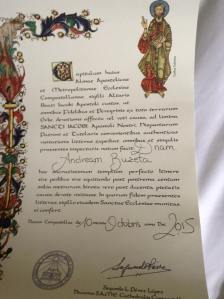 Capitulum huius
Almae Apostolicae
et Metropolitanae Ecclesiae
Compostellanae, sigilli Altaris
Beati Iacobi Apostoli custos, ut
omnibus Fidelibus et Peregrinis ex toto terrarum
Orbe, devotionis affectu vel voti causa, ad limina
SANCTI IACOBI, Apostoli Nostri, Hispaniarum
Patroni et Tutelaris convenientibus, authenticas
visitationis litteras expediat, omnibus et singulis
praesentes inspecturis, notum facit: Dnam
Andream Buzeta
hoc sacratissimum templum, perfecto itinere
sive pedibus sive equitando post postrema centum
milia metrorum, birota vero post ducenta, pietatis
causa, devote visitasse. In quorum fidem praesentes
litteras, sigillo eiusdem Sanctae Ecclesiae munitas,
ei confert.
Datum Compostellae die 10 mensis Octobris anno Dni 2015
Segundo L. Pérez López